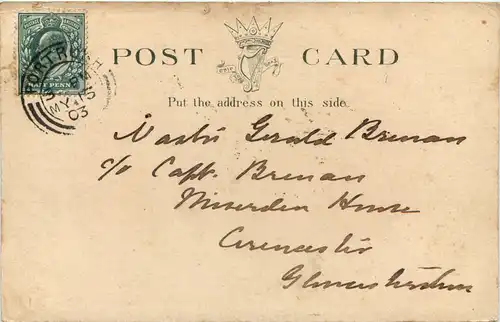 POST CARD
Put the address on this side.
HALF PENNY
PORTRUSH
MY
03
Master Gerald Brenan
c/o Capt. Brenan
Miserden House
Cirencester
Gloucestershire